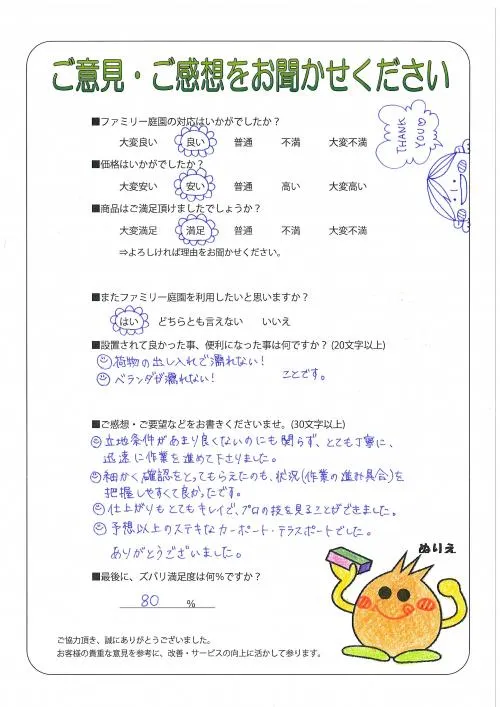 ご意見・ご感想をお聞かせください
■ファミリー庭園の対応はいかがでしたか？
大変良い 良い 普通 不満 大変不満
THANK YOU♡
■価格はいかがでしたか？
大変安い 安い 普通 高い 大変高い
■商品はご満足頂けましたでしょうか？
大変満足 満足 普通 不満 大変不満
⇒よろしければ理由をお聞かせください。
■またファミリー庭園を利用したいと思いますか？
はい どちらとも言えない いいえ
■設置されて良かった事、便利になった事は何ですか？(20文字以上)
荷物の出し入れで濡れない！
ベランダが濡れない！ ことです。
■ご感想・ご要望などをお書きくださいませ。(30文字以上)
立地条件があまり良くないのにも関らず、とても丁寧に、
迅速に作業を進めて下さりました。
細かく確認をとってもらえたのも、状況(作業の進み具合)を
把握しやすくて良かったです。
仕上がりもとてもキレイで、プロの技を見ることができました。
予想以上のステキなカーポート・テラスポートでした。
ありがとうございました。
ぬりえ
■最後に、ズバリ満足度は何％ですか？
80 %
ご協力頂き、誠にありがとうございました。
お客様の貴重な意見を参考に、改善・サービスの向上に活かして参ります。